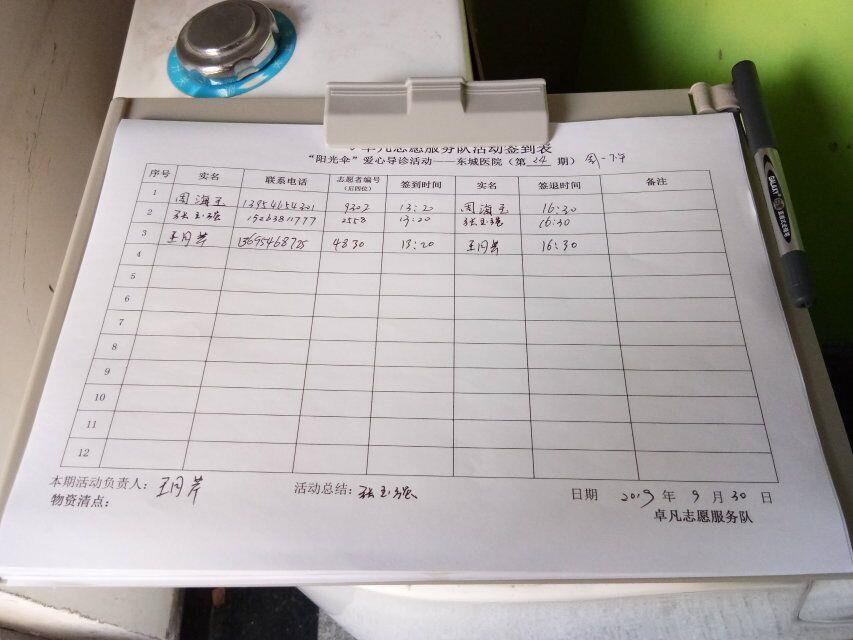 卓凡志愿服务队活动签到表
“阳光伞”爱心导诊活动——东城医院（第 24 期）周一下午
序号 实名 联系电话 志愿者编号（后四位） 签到时间 实名 签退时间 备注
1 周海玉 13954654201 9202 13:20 周海玉 16:30
2 张玉 15263811777 2558 13:20 张玉 16:30
3 王月芹 13695468725 4830 13:20 王月芹 16:30
4
5
6
7
8
9
10
11
12
本期活动负责人：王月芹 活动总结：张玉 日期 2019 年 9 月 30 日
物资清点： 卓凡志愿服务队
GALAXY